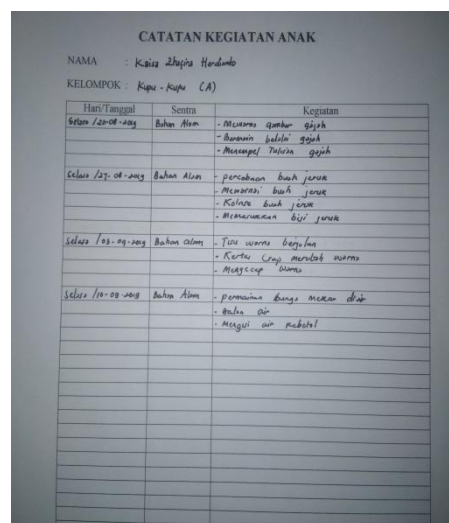 CATATAN KEGIATAN ANAK
NAMA :
KELOMPOK : Kupu - Kupu (A)
Hari/Tanggal Sentra Kegiatan
Selasa /20-08-2019 Bahan Alam - Mewarnai gambar gajah
- Bermain belalai gajah
- Menempel Tulisan gajah
Selasa /27-08-2019 Bahan Alam - percobaan buah jeruk
- Mewarnai buah jeruk
- Kolase buah jeruk
- Memasukkan biji jeruk
Selasa /03-09-2019 Bahan alam - Tisu warna berjalan
- Kertas Crap merubah warna
- Mengecap warna
Selasa /10-09-2019 Bahan Alam - permainan bunga mekar di air
- Balon air
- Mengisi air kebotol